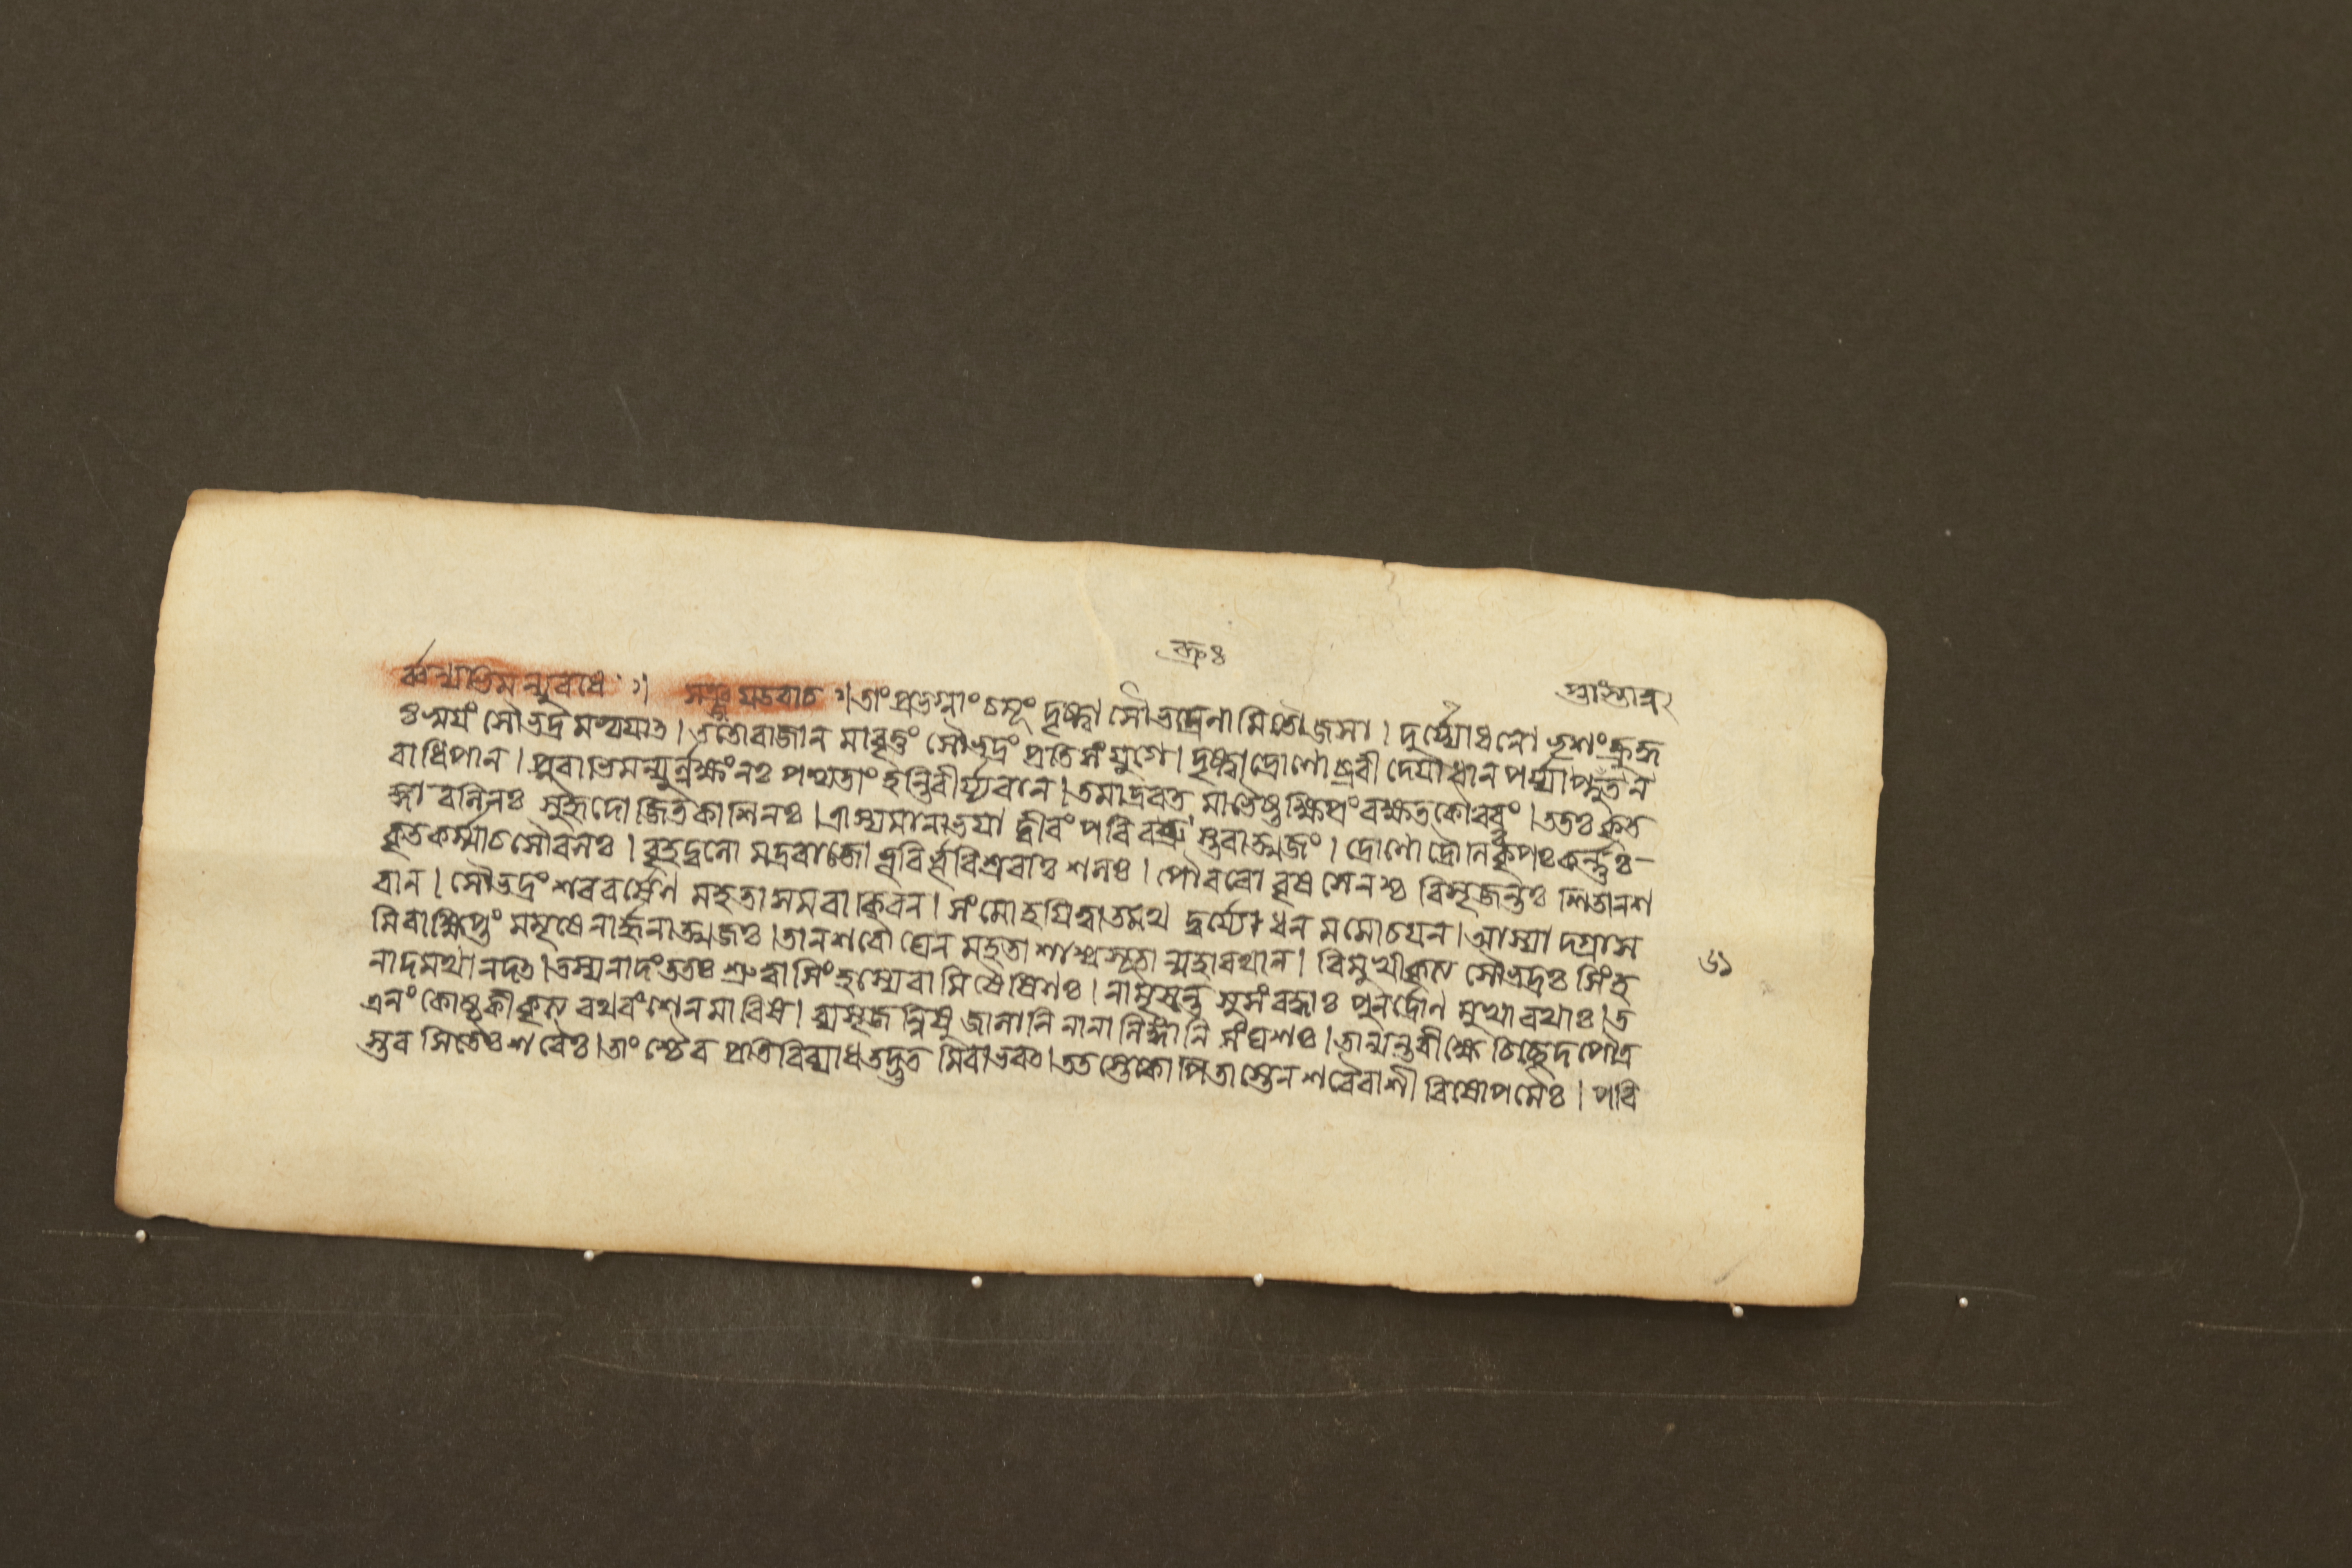 ক্রুঃ
র্ব্বন্যভিমন্যুবধে ঃ৷ সঞ্জয়উবাচ ৷৷তাং প্রভগ্নাং চমূং দৃষ্ট্বা সৌভদ্রেনামিতৌজসা । দুর্য্যোধনো ভৃশং ক্রুদ্ধ
ঃ স্ময়ং সৌভদ্রমভ্যয়াত । ততোরাজান মাবৃত্তং সৌভদ্রং প্রতিসংযুগে । দৃষ্ট্বাদ্রোণোব্রবী দেযৌধান পর্য্যাপ্নুতন
রাধিপান । পুরাভিমন্যুর্ল্লক্ষং নঃ পশ্যতাং হন্তিবীর্য্যবনে । তমাদ্রবত মাভৈষ্ট ক্ষিপ্রং রক্ষতকৌরবং । ততঃ কৃত
জ্ঞা বলিনঃ সুহৃদো জিতকাশিনঃ । ত্রাস্যমানাভয়া দ্বীরং পরি বব্রু স্তবাত্মজং । দ্রোণো দ্রৌনি কৃপঃ কর্ন্নঃ
কৃতকর্ম্মাচসৌবলঃ । বৃহদ্বলো মদ্ররাজো ভূরির্ভূরিশ্রবাঃ শলঃ । পৌরবো বৃষসেনশ্চ বিসৃজন্তঃ শিতানশ
রান । সৌভদ্রং শরবর্ষেণ মহতা সমবাকিরন । সংমোহয়িত্বাতমথ দুর্য্যোধন মমোচয়ন । আস্যাদগ্রাস
মিবাক্ষিপ্তং মমৃষে নার্জ্জুনাত্মজঃ । তানশরৌঘেন মহতা শাশ্বসূতা ন্মহারথান । বিমুখীকৃত্য সৌভদ্রঃ সিংহ
নাদমথানদৎ । তস্যনাদংততঃ শ্রুত্বা সিংহস্যেবামিষৈষিণঃ । নামৃষ্যন্ত সুসংরব্ধাঃ পুনর্দ্রোণ মুখারথাঃ । ত
এনং কোষ্ঠকীকৃত্য রথবংশেনমারিষ । ব্যসৃজন্নিষু জালানি নানা লিঙ্গানি সংঘশঃ । তান্যন্তরীক্ষে চিচ্ছেদপৌত্র
স্তব সিতৈঃশরৈঃ । তাংশ্চৈব প্রতিবিব্যাধতদদ্ভুত মিবাভবৎ । ততস্তেকোপিতাস্তেন শরৈরাশী বিষোপমৈঃ । পরি
৬১